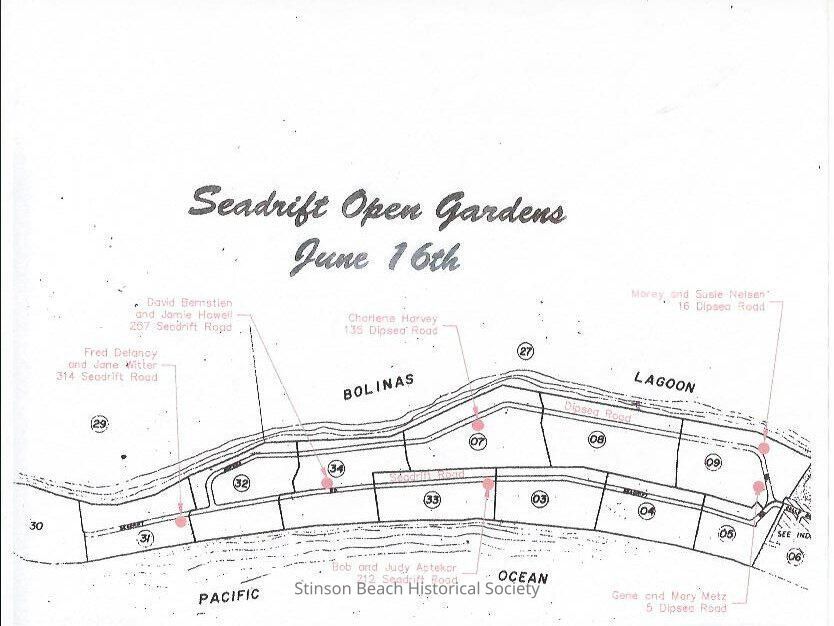 Seadrift Open Gardens
June 16th
David Bernstien
and Jamie Howell
287 Seadrift Road
Charlene Harvey
135 Dipsea Road
Morey and Susie Nelsen
16 Dipsea Road
Fred Delancy
and Jane Witter
314 Seadrift Road
27
BOLINAS
LAGOON
Dipsea Road
29
07
08
09
34
32
Seadrift Road
33
03
04
05
30
31
SEE IND
06
Bob and Judy Aptekar
212 Seadrift Road
PACIFIC
OCEAN
Stinson Beach Historical Society
Gene and Mary Metz
5 Dipsea Road